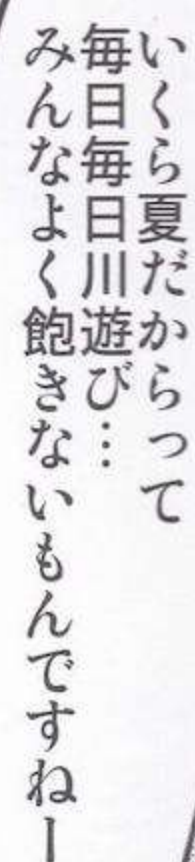 いくら夏だからって
毎日毎日川遊び…
みんなよく飽きないもんですねー